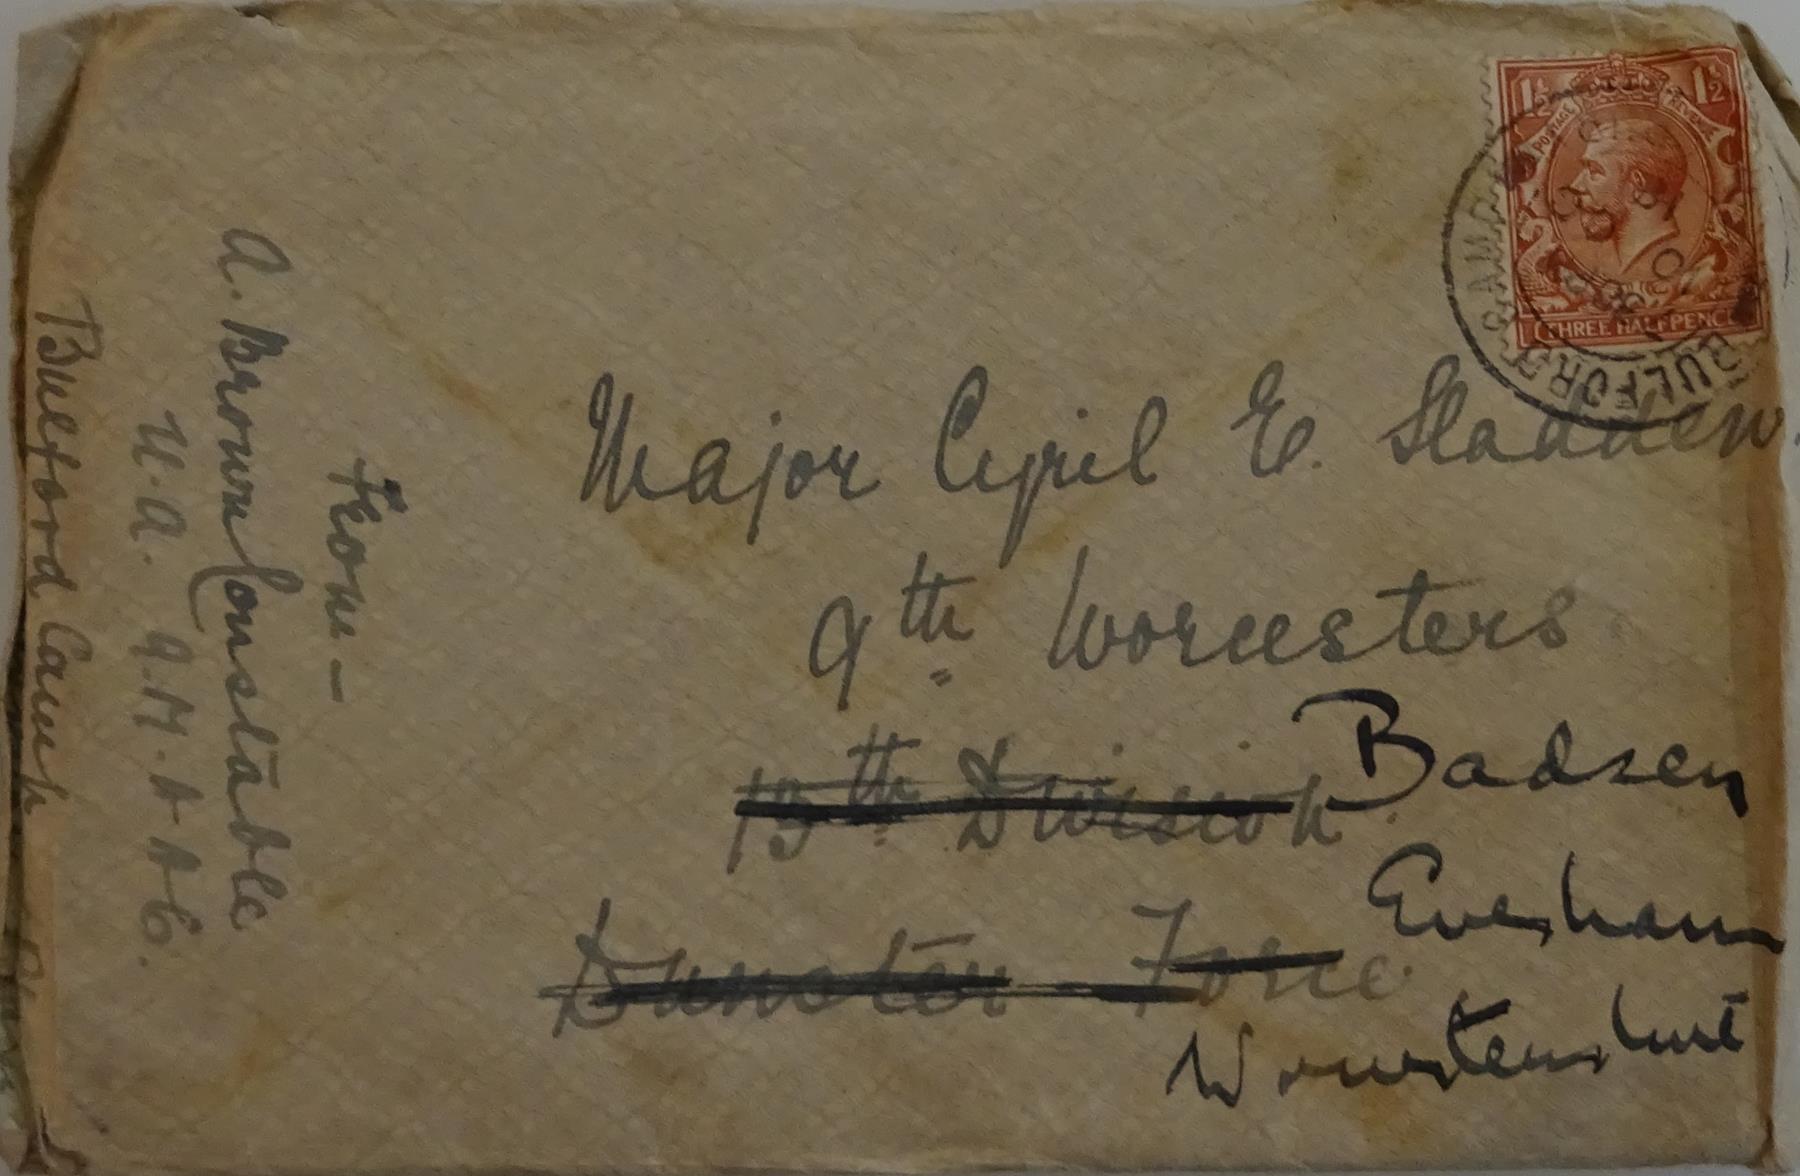 1½ 1½
POSTAGE REVENUE
THREE HALFPENCE
BULFORD CAMP
Major Cyril E. Sladden.
9th Worcesters
13th Division
Badsey
Dunster Force.
Evesham
Worcestershire
From —
A. Brown Constable
U.A. Q.M.A.A.C.
Bulford Camp